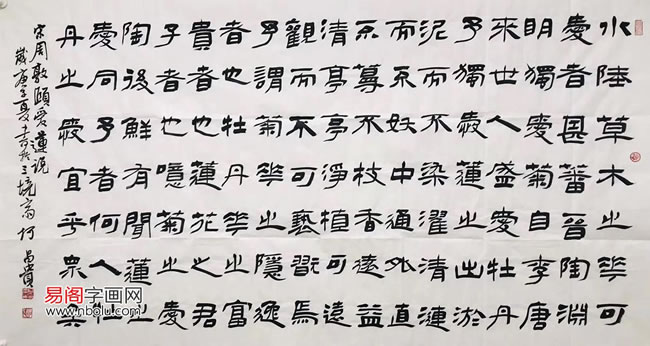 水陸草木之華可
愛者甚蕃晉陶淵
明獨愛菊自李唐
來世人盛愛牡丹
予獨愛蓮之出淤
泥而不染濯清漣
而不妖中通外直
不蔓不枝香遠益
清亭亭淨植可遠
觀而不可褻翫焉
予謂菊華之隱逸
者也牡丹華之富
貴者也蓮花之君
子者也噫菊之愛
陶後鮮有聞蓮之
愛同予者何人牡
丹之愛宜乎眾矣
宋周敦頤愛蓮說
歲庚子夏 昌貴
易阁字画网
www.nbolu.com